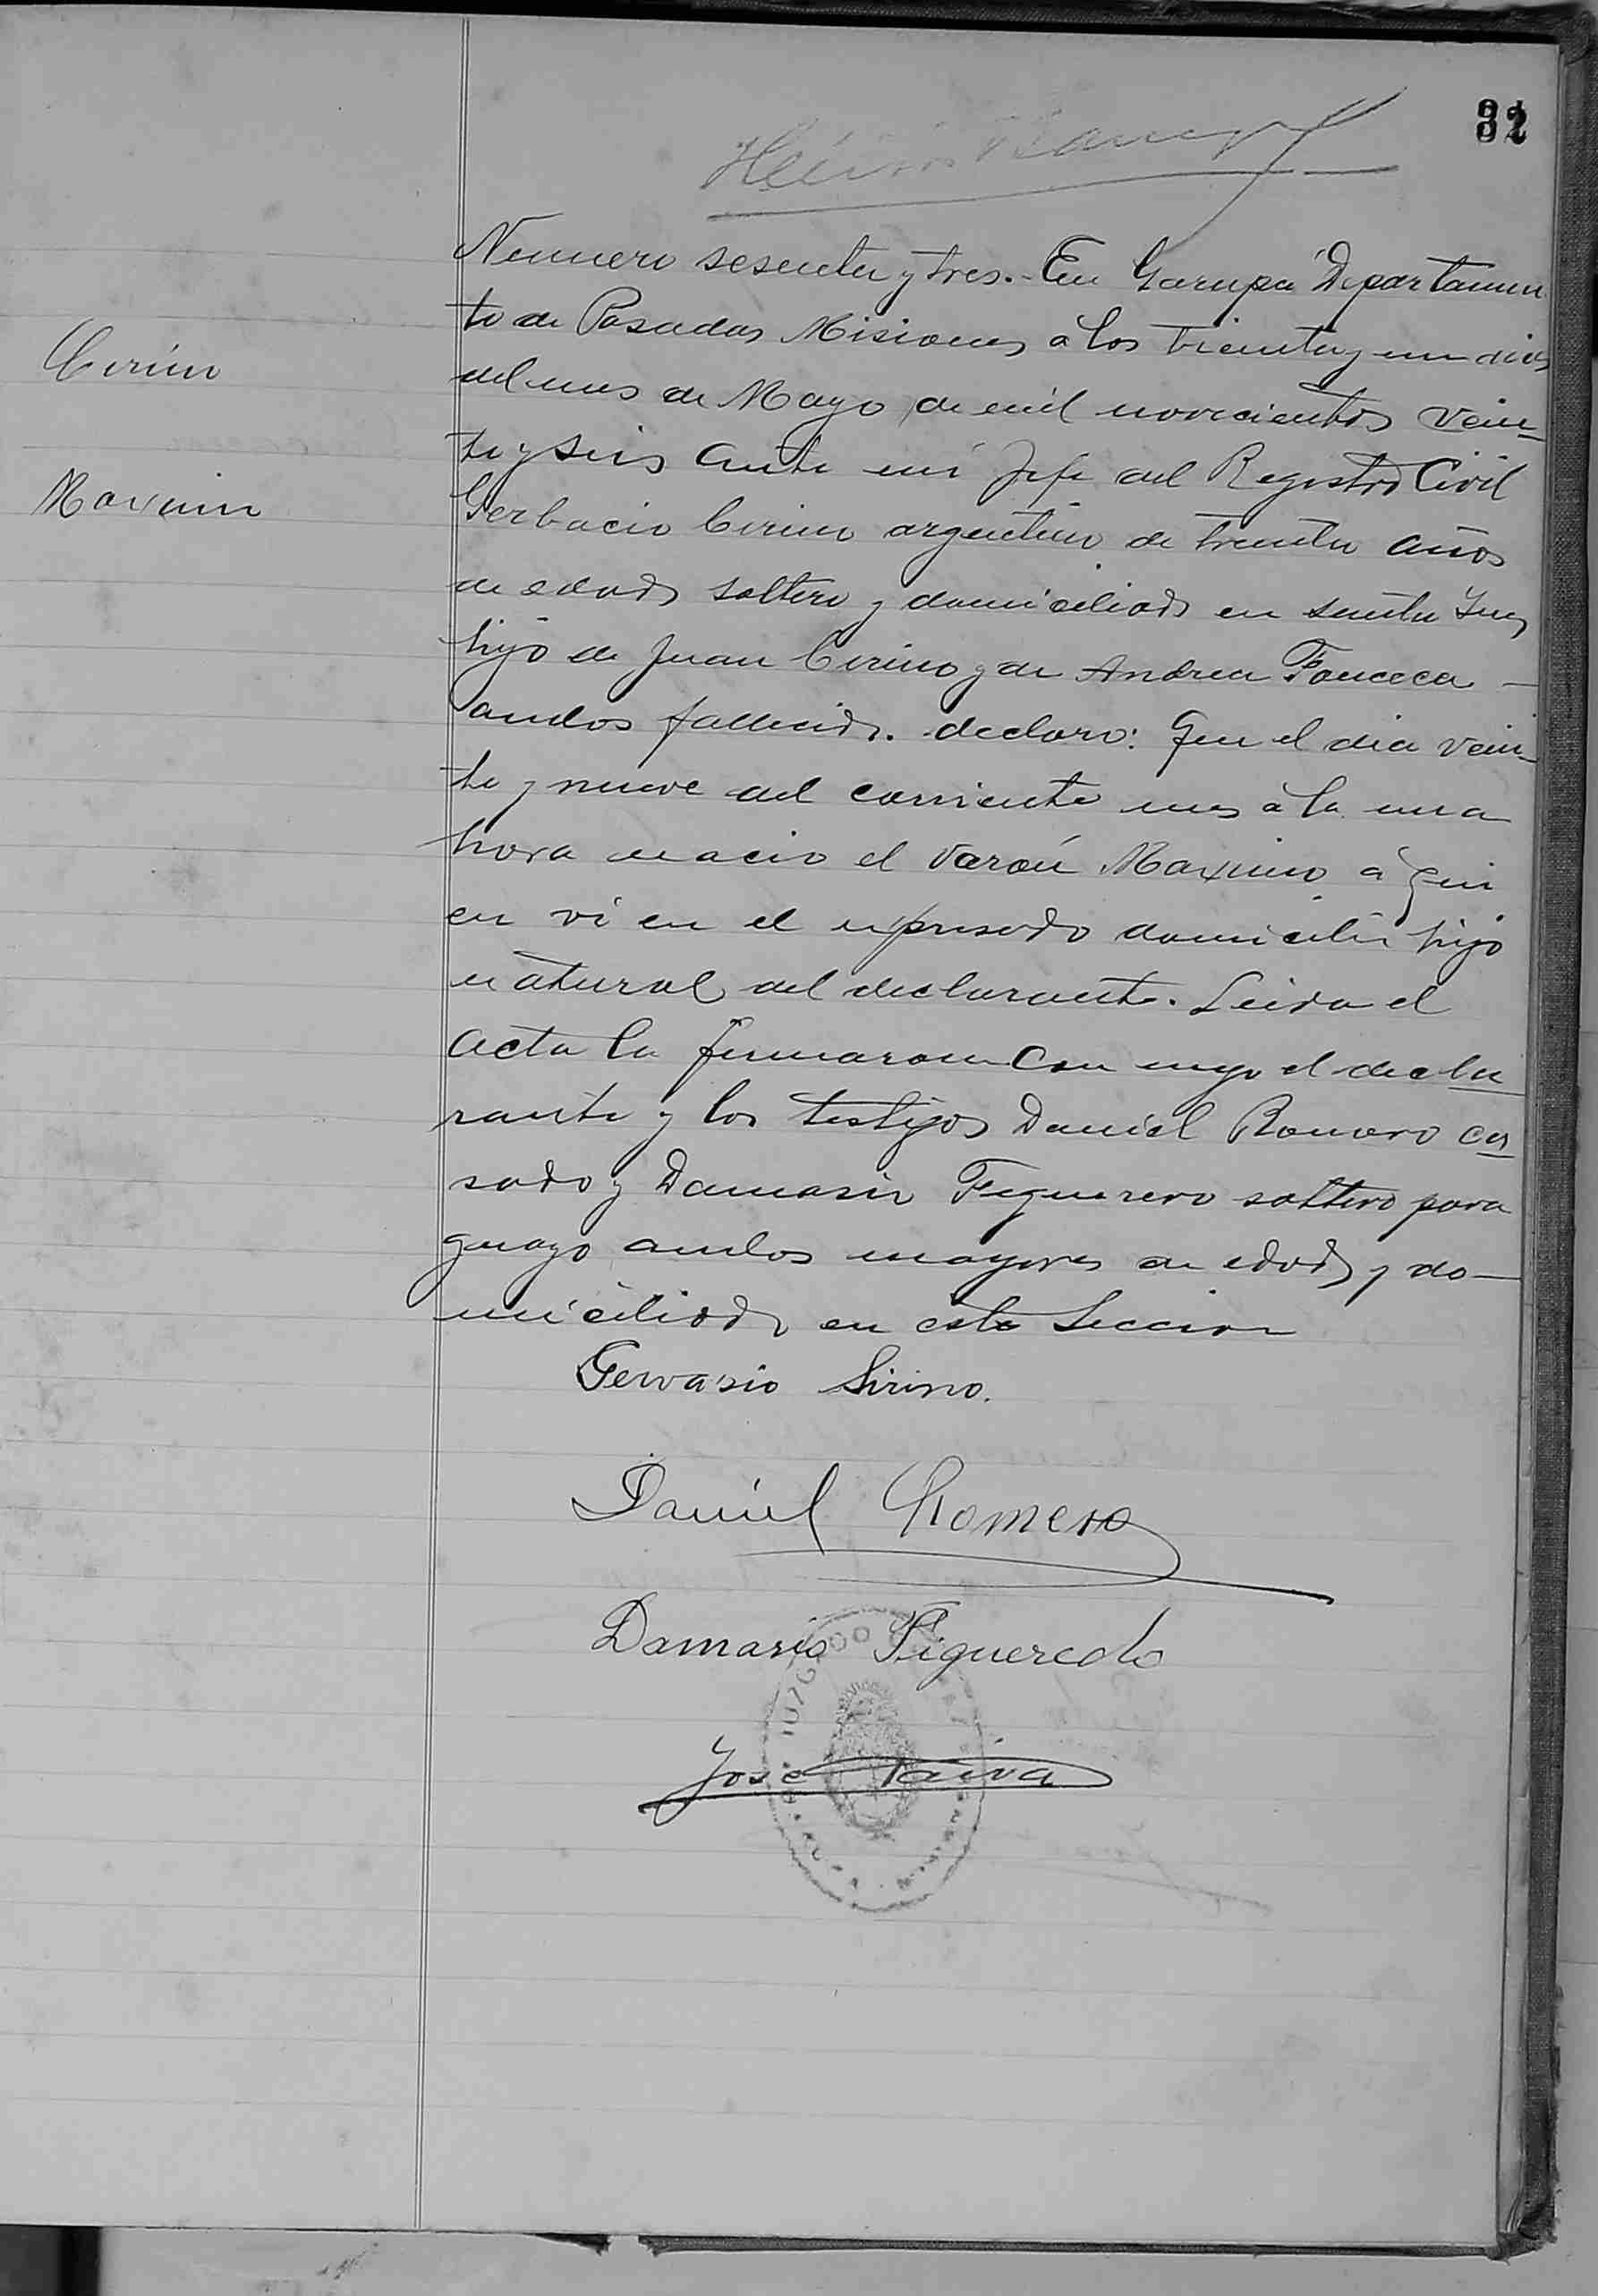 32
Numero sesenta y tres. - En Garupá Departamen
to de Posadas Misiones á los treinta y un dias
Cirino
del mes de Mayo de mil novecientos vein-
te y seis ante mi Jefe del Registro Civil
Maximin
Gerbacio Cirino argentino de treinta años
de edad soltero y domiciliado en santa Ines
hijo de Juan Cirino y de Andrea Fonceca -
ambos fallecidos. declaro: Que el dia vein-
te y nueve del corriente mes á la una
hora nacio el varón Maximino á qui
en vi en el expresado domicilio hijo
natural del declarante. Leida el
acta la firmaron con migo el decla
rante y los testigos Daniel Romero ca
sado y Damasio Figuerero soltero para
guayo ambos mayores de edad y do-
miciliados en esta Seccion
Gervasio Sirino.
Daniel Romero
Damasio Figueredo
José Paiva